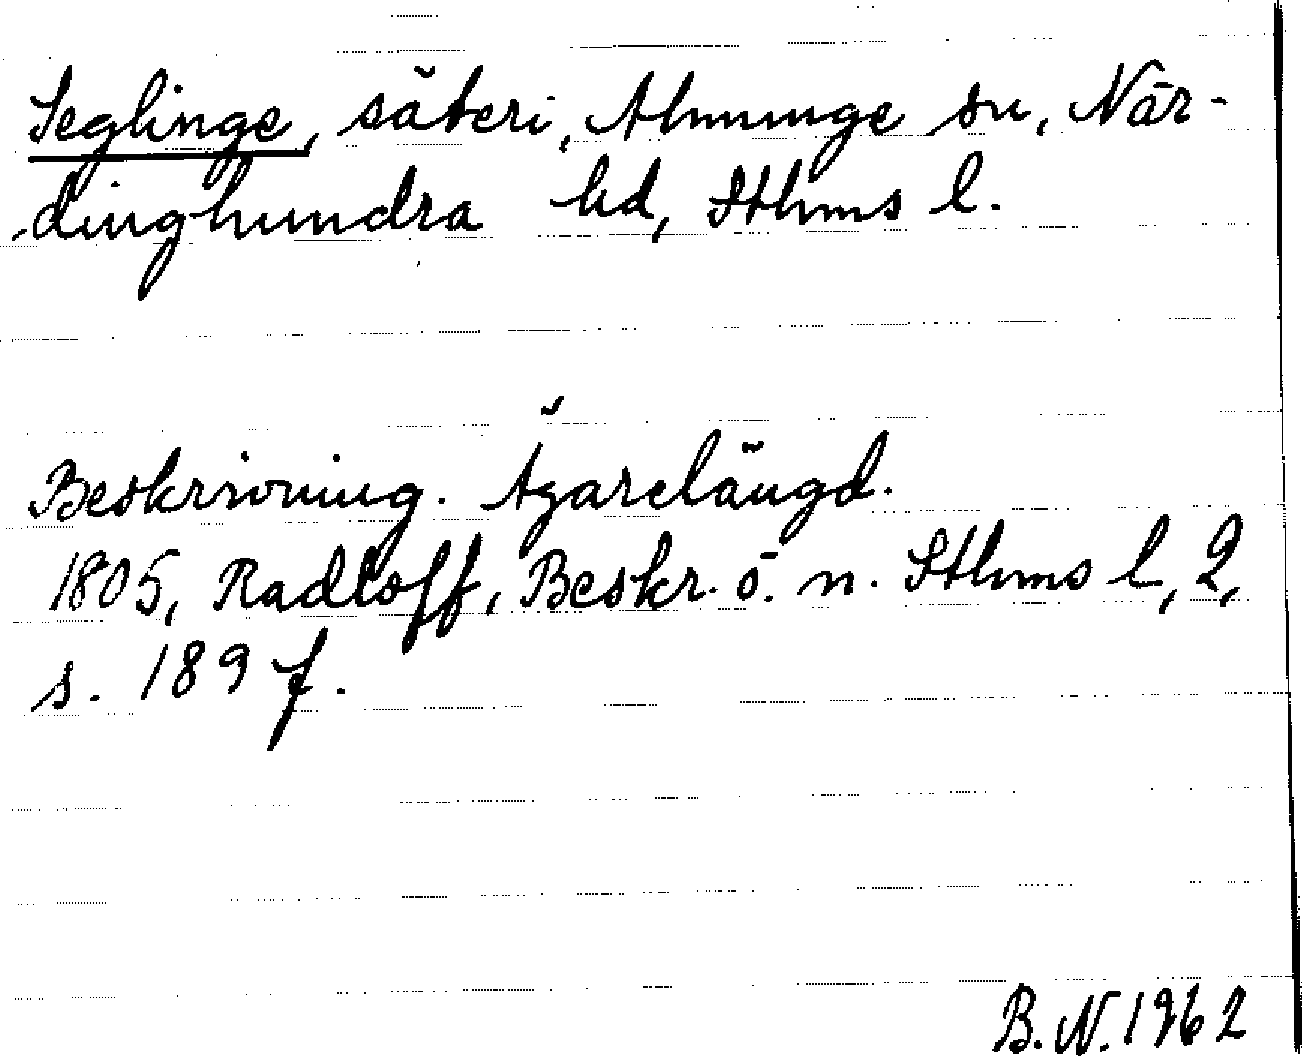 Seglinge, säteri, Almunge sn, När-
dinghundra hd, Sthms l.
Beskrivning. Ägarelängd.
1805, Radloff, Beskr. ö. n. Sthms l, 2,
s. 189 f.
B. N. 1962